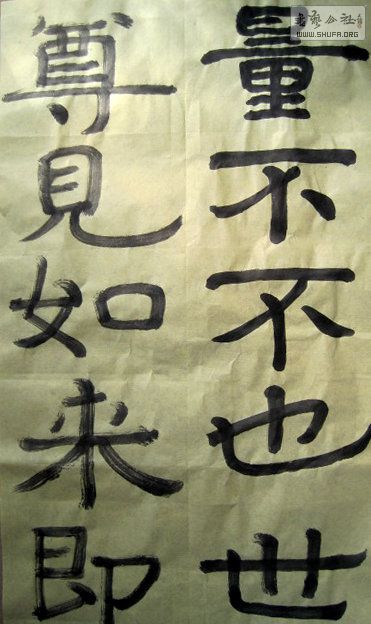 量不不也世
尊見如来即
書藝公社
WWW.SHUFA.ORG